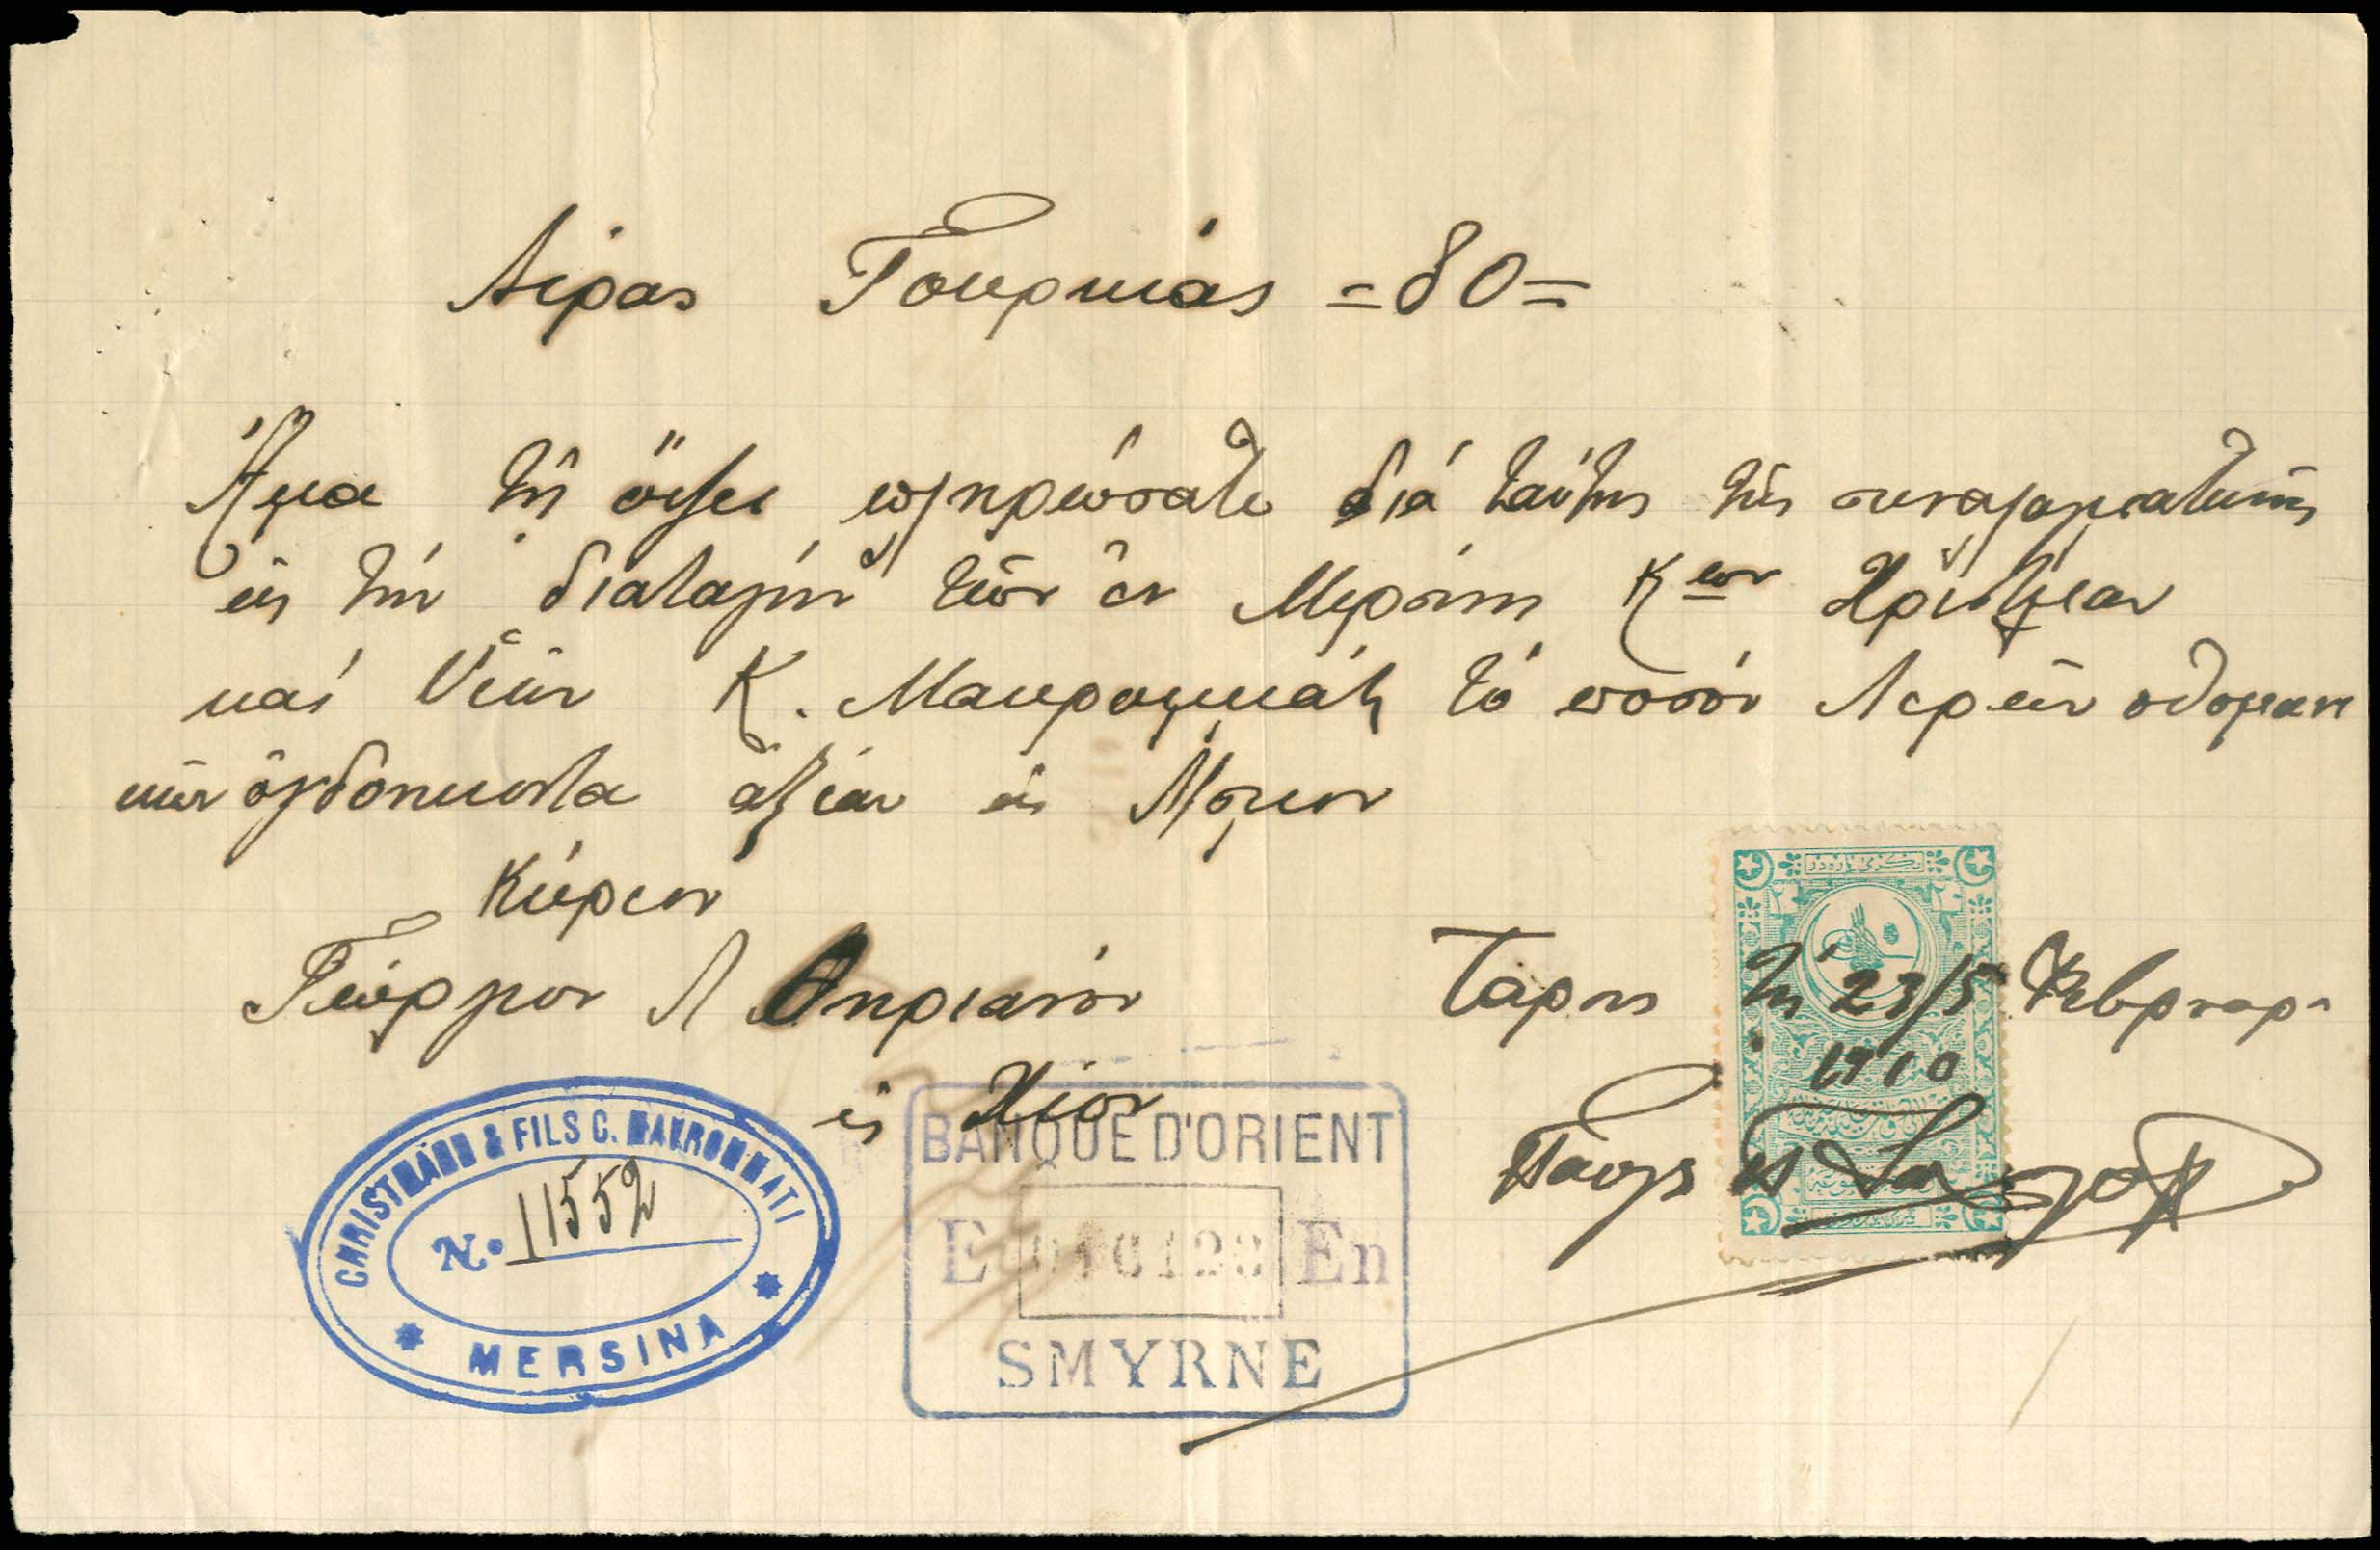 Λίρας Τουρκιάς =80=
Ἅμα τῇ ὄψει πληρώσατε διὰ ταύτης τῆς συναλλαγματικῆς
εἰς τὴν διαταγὴν τῶν ἐν Μερσίνῃ Κων Χρίστμαν
καὶ Υἱῶν Κ. Μαυρομμάτη τὸ ποσὸν Λιρῶν οθομανι
κῶν ὀγδοηκοντα ἀξίαν εἰς
Κύριον
Γεώργιον Λ
εἰς Χίον
Ταρσῷ τῇ 23/5 Φεβρουαρ
1910
CHRISTMANN & FILS C. MAVROMMATI
No. 11552
MERSINA
BANQUE D'ORIENT
E En
SMYRNE